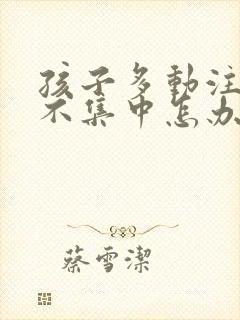 孩子多動注
不集中怎办
蔡雪潔